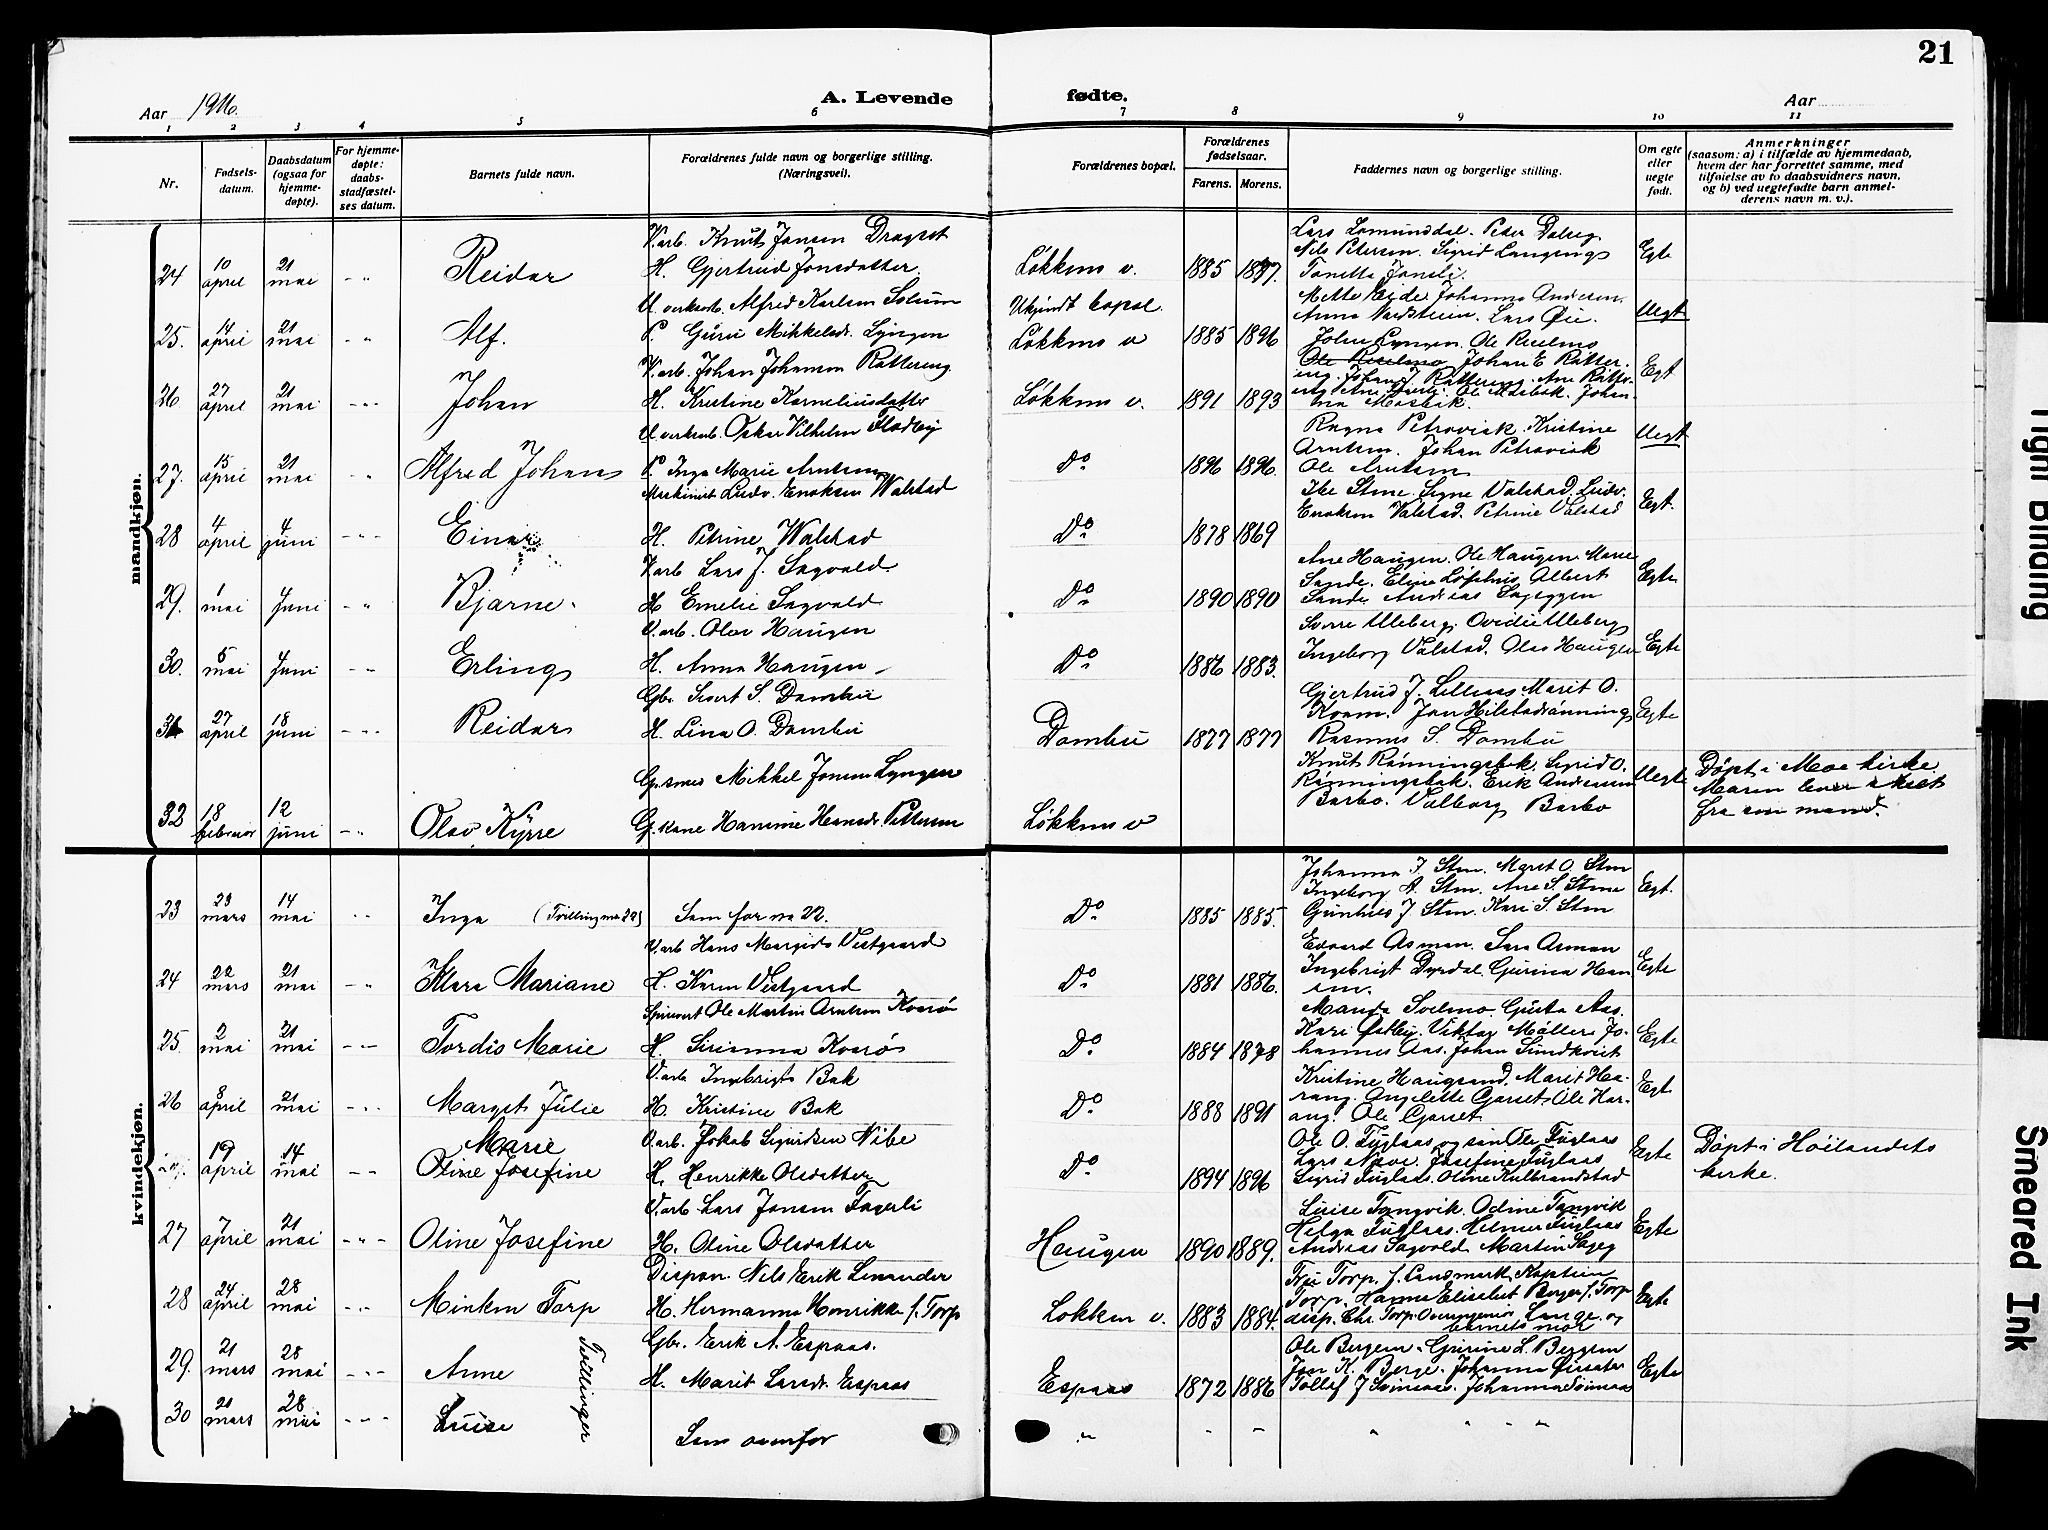 21
Aar 1916.
A. Levende
fødte.
Aar
1 2 3 4 5 6 7 8 9 10 11
Nr.
Fødsels-
datum.
Daabsdatum
(ogsaa for
hjemme-
døpte).
For hjemme-
døpte:
daabs-
stadfæstel-
ses datum.
Barnets fulde navn.
Forældrenes fulde navn og borgerlige stilling.
(Næringsvei).
Forældrenes bopæl.
Forældrenes
fødselsaar.
Farens.
Morens.
Faddernes navn og borgerlige stilling.
Om egte
eller
uegte
født.
Anmerkninger
(saasom: a) i tilfælde av hjemmedaab,
hvem der har forrettet samme, med
tilføielse av to daabsvidners navn,
og b) ved uegtefødte barn anmel-
derens navn m. v.).
mandkjøn.
24 10 april 21 mai Reidar
V.arb. Knut Jonsen Dragset
H. Gjertrud Jonsdatter.
Løkkens v. 1885 1887.
Lars Lomunddal. Peter Dalseg
Nils Petersen. Sigrid Langeng
Tonette Jonsli.
Egte
25. 14 april 21 mai Alf.
U. verksarb. Alfred Karlsen Solum
P. Guru Mikkelsdr. Lyngen
Ukjendt bopæl.
Løkkens v 1885 1896
Mette Eide, Johanna Andersen,
Anna Nordstein. Lars Øie.
John Lyngen. Ole Reselmo
Uegt
26 27 april 21 mai Johan
V.arb. Johan Johansen Røttereng
H. Kristine Korneliusdatter
Løkkens v. 1891 1893
Ole Reselmo Johan E Røtter-
eng. Johan J. Røttereng. Ane Røtter-
Egt
27. 15 april 21 mai Alfred Johan
U. verksarb. Oskar Vilhelm Flodby
P. Inga Marie Arntsen
Do 1896 1896.
Ragna Petrovisk. Kristine
Arntsen. Johan Petrovisk
Ole Arntsen
Uegt
28 4 april 4 juni Einar
Maskinist Ludv. Enoksen Walstad
H. Petrine Walstad
Do 1878 1869
Signe Valstad. Ludv.
Enoksen Valstad. Petrine Valstad
Egt.
29. 1 mai 4 juni Bjarne.
V.arb Lars J. Sagvold.
H Emelie Sagvold
Do 1890 1890
Ane Haugen. Ole Haugen. Marie
Sande. Albert
Sande Andreas Sageggen
Egte
30. 5 mai 4 juni Erling
V.arb. Olav Haugen
H. Anna Haugen
Do 1886 1883.
Sverre Uleberg. Ovidie Uleberg
Ingeborg Valstad. Olav Haugen
Egte
31 27 april 18 juni Reidar
Gbr. Sivert S. Dombu
H. Lina O. Dombu
Dombu 1877 1877
Gjertrud J. Lilleaas. Marit O.
Rasmus S. Dombu
Egte
32 18 februar 12 juni Olav Kyrre
G.smed Mikkel Jonsen Lyngen
G.kone Hansine Hansdr. Pettersen
Løkkens v
Knut Rønningsbak. Sigrid O.
Rønningsbak. Erik Andersen
Barbo. Valborg Barbo
Uegte
Døpt i Moe kirke
Moren lever skilt
fra sin mand.
kvindekjøn.
23 23 mars 14 mai Inga (Tvilling m. 22)
Sam for no 22.
Do 1885 1885.
Johanna J. Sten. Marit O. Sten
Ingeborg A. Sten. Ane S. Stene
Gunhild J Sten. Kari S. Sten
Egt.
24 22 mars 21 mai Klara Mariane
V.arb Hans Vestgaard
H. Karen Vestgaard
Do 1881 1886.
Edvard Asman. Sara Asman
Ingebrigt Dyrdal. Gurina Han
sen.
Egte
25. 2 mai 21 mai Tordis Marie
Ole Martin Arntsen Kvarø
H. Kvarø
Do 1884 1878
Gusta Aas.
Kari Østby. Viktor Møller. Jo-
hannes Aas. Johan Sundkvist
Egte
26 8 april 21 mai Margit Julie
V.arb Ingebrigt Bak
H. Kristine Bak
Do 1888 1891
Kristine Haugsand. Marit Ha-
rang. Angelette Garset. Ole Har-
ang. Ole Garset
Egt
19 april 14 mai Marie
Oline Josefine
V.arb. Jakob Sigurdsen Nibe
H. Henrikke Olsdatter
Do 1894 1896
Ole O. Fuglaas og søn Ole Fuglaas
Josefine Fuglaas
Sigrid Fuglaas. Oline Kulbrandstad
Egte
Døpt i Høilandets
kirke.
27 7 april 21 mai Oline Josefine
V.arb Lars Jonsen Fagerli
H. Oline Olsdatter
Haugen 1890 1889.
Luise Tangvik. Odine Tangvik
Helga Fuglaas. Helmer Fuglaas
Andreas Sagvold. Martin Sageg
Egte
28 24 april 28 mai Minken Torp
Dispon. Nils Erik Lenander
H. Hermanna Henrikke f. Torp
Løkken v. 1883 1884.
Fru Torp. f. Landmark, Kaptein
Torp. Hanna Elisabet Berger f. Torp
disp. Chr. Torp. Lange. og
barnets mor
Egte
29. 21 mars 28 mai Anne
Tvillinger
Gbr. Erik A. Espaas.
H. Marit Larsdr. Espaas
Espaas 1872 1886
Ole Bergem. Gurine L. Bergem
Jon K. Berge. Johanna
Tollef J Svinsaas. Johanna Svinsaas
Egte
30 21 mars 28 mai Luise
Som ovenfor
Tight Binding
Smeared Ink